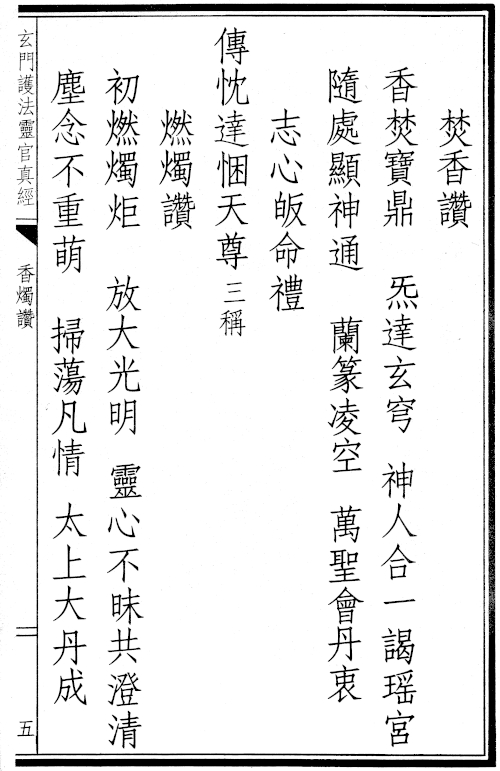 焚香讚
香焚寶鼎　炁達玄穹　神人合一謁瑤宮
隨處顯神通　蘭篆凌空　萬聖會丹衷
志心皈命禮
傳忱達悃天尊 三稱
燃燭讚
初燃燭炬　放大光明　靈心不昧共澄清
塵念不重萌　掃蕩凡情　太上大丹成
玄門護法靈官真經
香燭讚
五